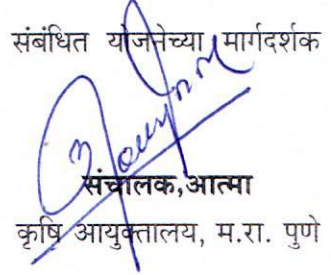 संबंधित योजनेच्या मार्गदर्शक
संचालक,आत्मा
कृषि आयुक्तालय, म.रा. पुणे